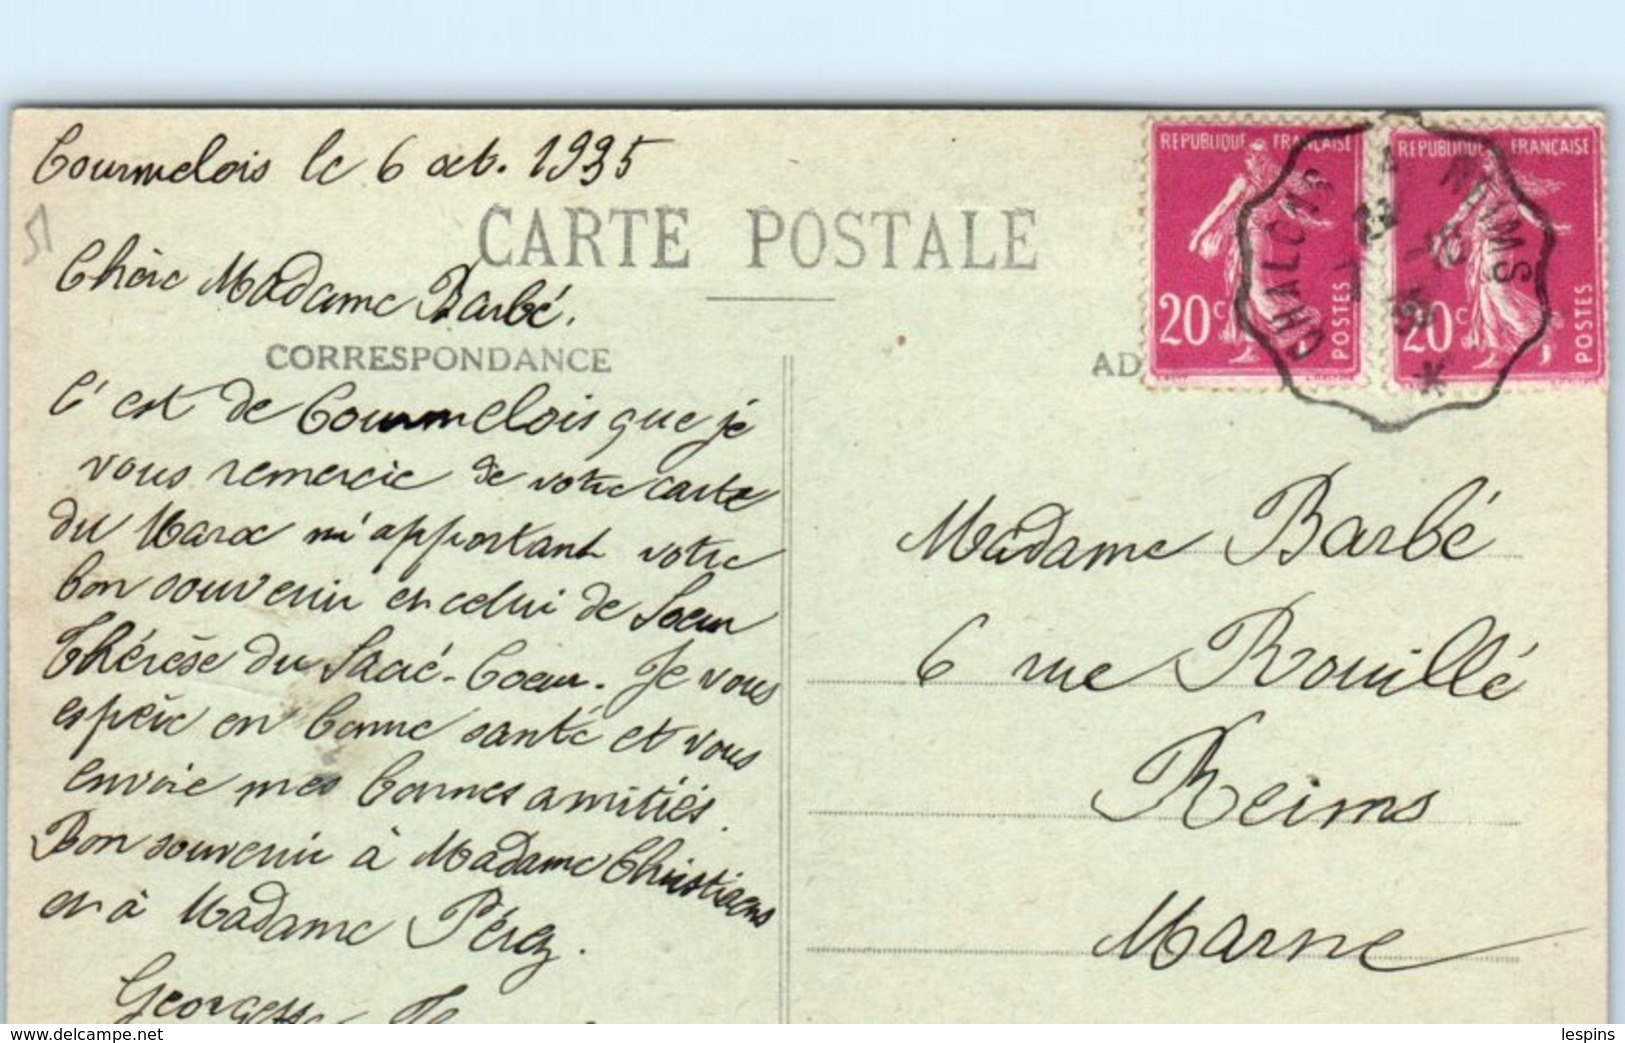 Tourmelois le 6 oct. 1935
CARTE POSTALE
Chère Madame Barbé.
CORRESPONDANCE
C'est de Tourmelois que je
vous remercie de votre carte
du Maroc m'apportant votre
bon souvenir et celui de Soeur
Thérèse du Sacré-Coeur. Je vous
espère en bonne santé et vous
envoie mes bonnes amitiés.
Bon souvenir à Madame Christiaens
et à Madame Pérez.
Georgette
AD
REPUBLIQUE FRANÇAISE
20c
POSTES
REPUBLIQUE FRANÇAISE
20c
POSTES
CHALONS A REIMS
Madame Barbé
6 rue Rouillé
Reims
Marne
www.delcampe.net
lespins